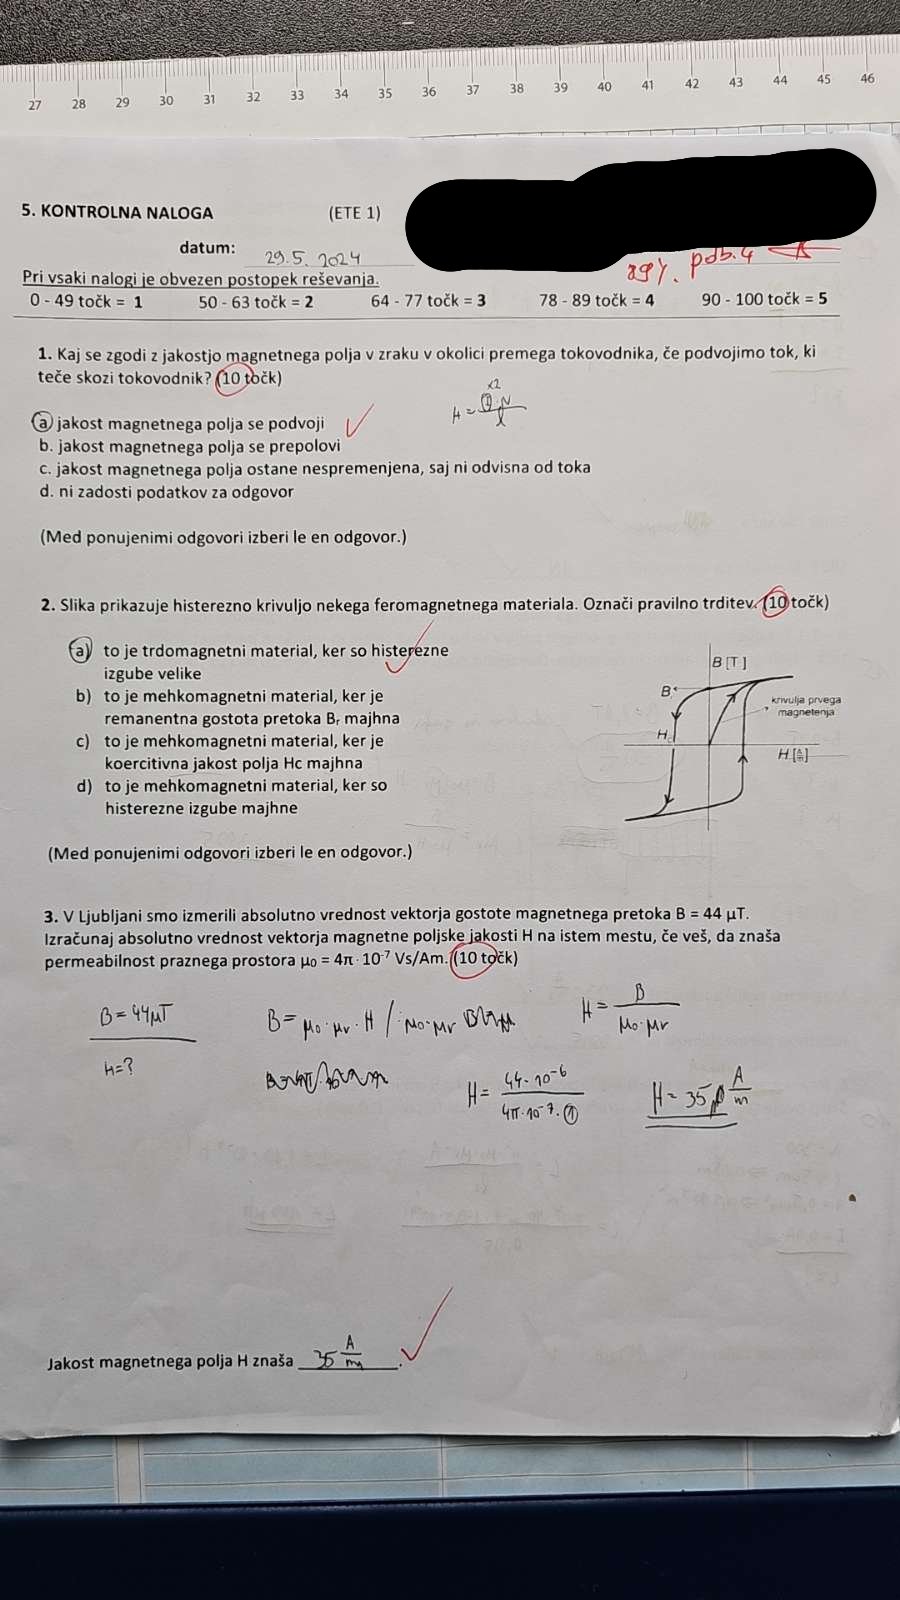 27 28 29 30 31 32 33 34 35 36 37 38 39 40 41 42 43 44 45 46
5. KONTROLNA NALOGA (ETE 1)
datum: 29.5. 2024
89%. pdb.4
Pri vsaki nalogi je obvezen postopek reševanja.
0 - 49 točk = 1 50 - 63 točk = 2 64 - 77 točk = 3 78 - 89 točk = 4 90 - 100 točk = 5
1. Kaj se zgodi z jakostjo magnetnega polja v zraku v okolici premega tokovodnika, če podvojimo tok, ki
teče skozi tokovodnik? (10 točk)
x2
H = I·N / l
a jakost magnetnega polja se podvoji
b. jakost magnetnega polja se prepolovi
c. jakost magnetnega polja ostane nespremenjena, saj ni odvisna od toka
d. ni zadosti podatkov za odgovor
(Med ponujenimi odgovori izberi le en odgovor.)
2. Slika prikazuje histerezno krivuljo nekega feromagnetnega materiala. Označi pravilno trditev. (10 točk)
a) to je trdomagnetni material, ker so histerezne
izgube velike
b) to je mehkomagnetni material, ker je
remanentna gostota pretoka Br majhna
c) to je mehkomagnetni material, ker je
koercitivna jakost polja Hc majhna
d) to je mehkomagnetni material, ker so
histerezne izgube majhne
B [T]
Br
krivulja prvega
magnetenja
Hc
H [A/m]
(Med ponujenimi odgovori izberi le en odgovor.)
3. V Ljubljani smo izmerili absolutno vrednost vektorja gostote magnetnega pretoka B = 44 µT.
Izračunaj absolutno vrednost vektorja magnetne poljske jakosti H na istem mestu, če veš, da znaša
permeabilnost praznega prostora µ₀ = 4π · 10⁻⁷ Vs/Am. (10 točk)
B = 44µT
H=?
B = µ₀·µr·H / :µ₀·µr
H = B / µ₀·µr
H = 44·10⁻⁶ / 4π·10⁻⁷·1
H = 35 A/m
Jakost magnetnega polja H znaša 35 A/m.